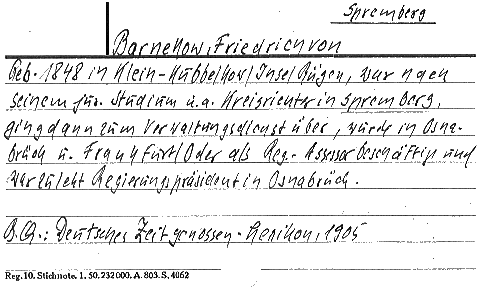 Spremberg
Barnekow, Friedrich von
Geb. 1848 in Klein-Kubbelkow/Insel Rügen, war nach
seinem jur. Studium u.a. Kreisrichter in Spremberg,
ging dann zum Verwaltungsdienst über, wurde in Osna-
brück u. Frankfurt/Oder als Reg.-Assessor beschäftigt und
war zuletzt Regierungspräsident in Osnabrück.
: Deutsches Zeitgenossen-Lexikon, 1905
Reg. 10. Stichnote. 1. 50. 232000. A. 803. S. 4062